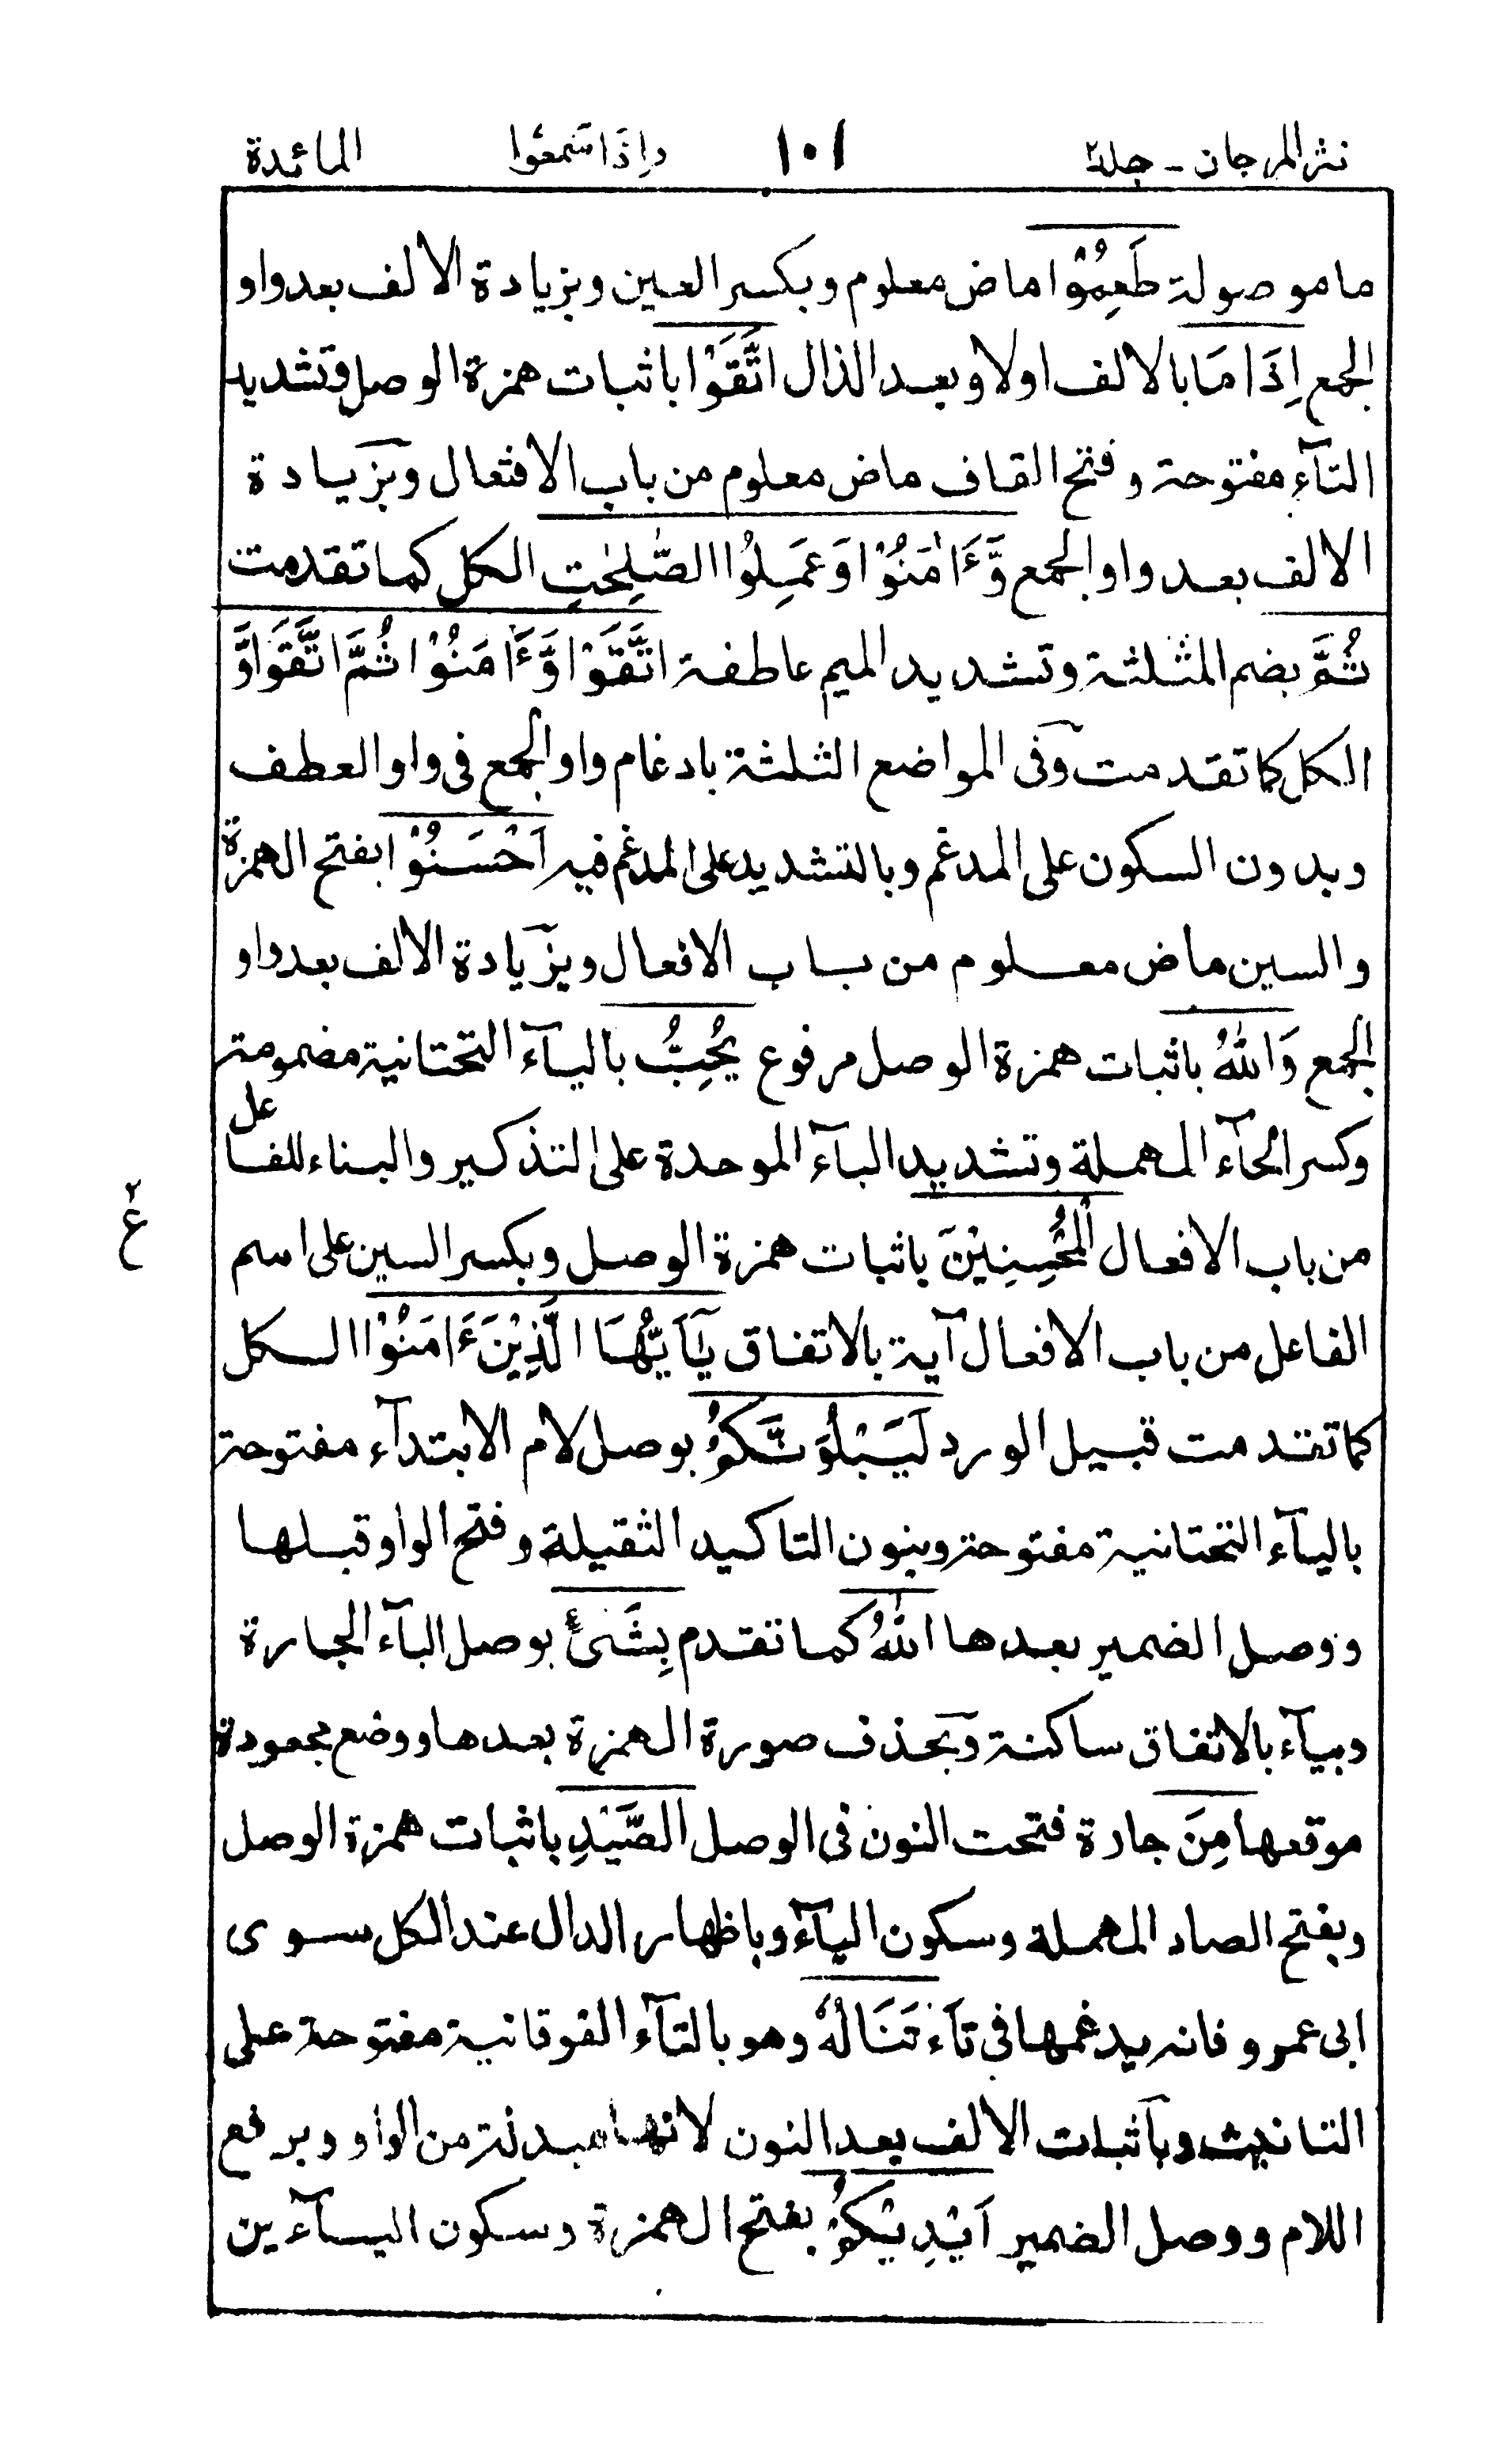 نثر المرجان - جلد۲ ۱۰۱ واِذَا سَمِعُوا المائدة
ما موصولة طَعِمُوْا ماض معلوم وبكسر العين وبزيادة الالف بعد واو
الجمع اِذَا مَا بالالف اولا وبعد الذال اتَّقَوْا باثبات همزة الوصل وتشديد
التآء مفتوحة وفتح القاف ماض معلوم من باب الافتعال وبزيادة
الالف بعد واو الجمع وَّءَامَنُوْا وَعَمِلُوا الصّٰلِحٰتِ الكل كما تقدمت
ثُمَّ بضم المثلثة وتشديد الميم عاطفة اتَّقَوْا وَّءَامَنُوْا ثُمَّ اتَّقَوا وَّ
الكل كما تقدمت وفى المواضع الثلثة بادغام واو الجمع فى واو العطف
وبدون السكون على المدغم وبالتشديد على المدغم فيه اَحْسَنُوْا بفتح الهمزة
والسين ماض معلوم من باب الافعال وبزيادة الالف بعد واو
الجمع وَاللّٰهُ باثبات همزة الوصل مرفوع يُحِبُّ باليآء التحتانية مضمومة
وكسر الحآء المهملة وتشديد البآء الموحدة على التذكير والبناء للفاعل
من باب الافعال الْمُحْسِنِيْنَ باثبات همزة الوصل وبكسر السين على اسم
۲
ع
الفاعل من باب الافعال آية بالاتفاق يٰٓاَيُّهَا الَّذِيْنَ ءَامَنُوْا الكل
كما تقدمت قبيل الورد لَيَبْلُوَنَّكُمُ بوصل لام الابتدآء مفتوحة
باليآء التحتانية مفتوحة وبنون التاكيد الثقيلة وفتح الواو قبلها
ووصل الضمير بعدها اللّٰهُ كما تقدم بِشَىْءٍ بوصل البآء الجارة
وبيآء بالاتفاق ساكنة وبحذف صورة الهمزة بعدها ووضع مجعودة
موقعها مِنَ جارة فتحت النون فى الوصل الصَّيْدِ باثبات همزة الوصل
وبفتح الصاد المهملة وسكون اليآء وباظهار الدال عند الكل سوى
ابى عمرو فانه يدغمها فى تآء تَنَالُهٗ وهو بالتآء الفوقانية مفتوحة على
التانيث وباثبات الالف بعد النون لانها مبدلة من الواو وبرفع
اللام ووصل الضمير اَيْدِيْكُمْ بفتح الهمزة وسكون اليآءين